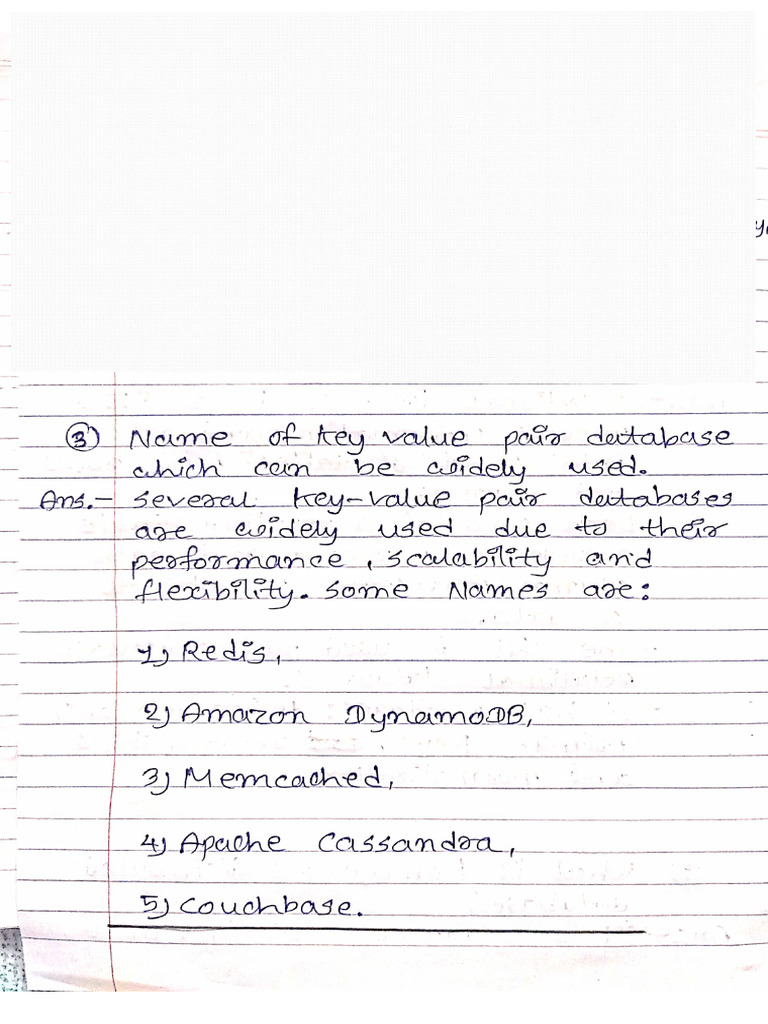 ③ Name of key value pair database
which can be widely used.
Ans.- several key-value pair databases
are widely used due to their
performance, scalability and
flexibility. some Names are:
1) Redis,
2) Amazon DynamoDB,
3) Memcached,
4) Apache Cassandra,
5) couchbase.